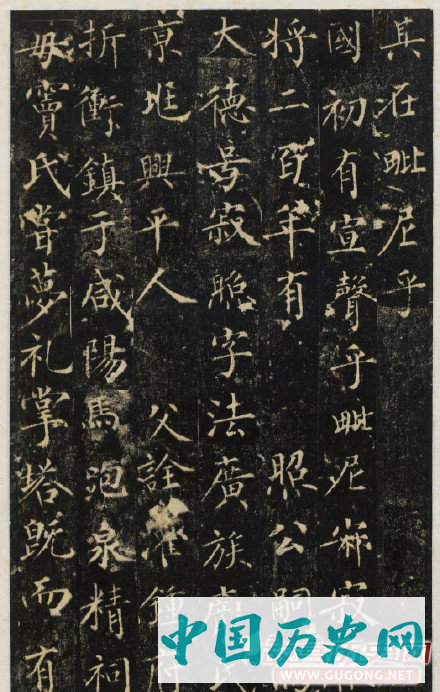 真在毗尼乎
國初有宣聲乎毗尼寂
将二百年有 照公嗣
大德号寂照字法廣族龐氏
京兆興平人 父詮灌鍾府
折衝鎮于咸陽馬泡泉精祠
毋竇氏嘗夢礼掌塔既而有
中国历史网
WWW.GUGONG.NET